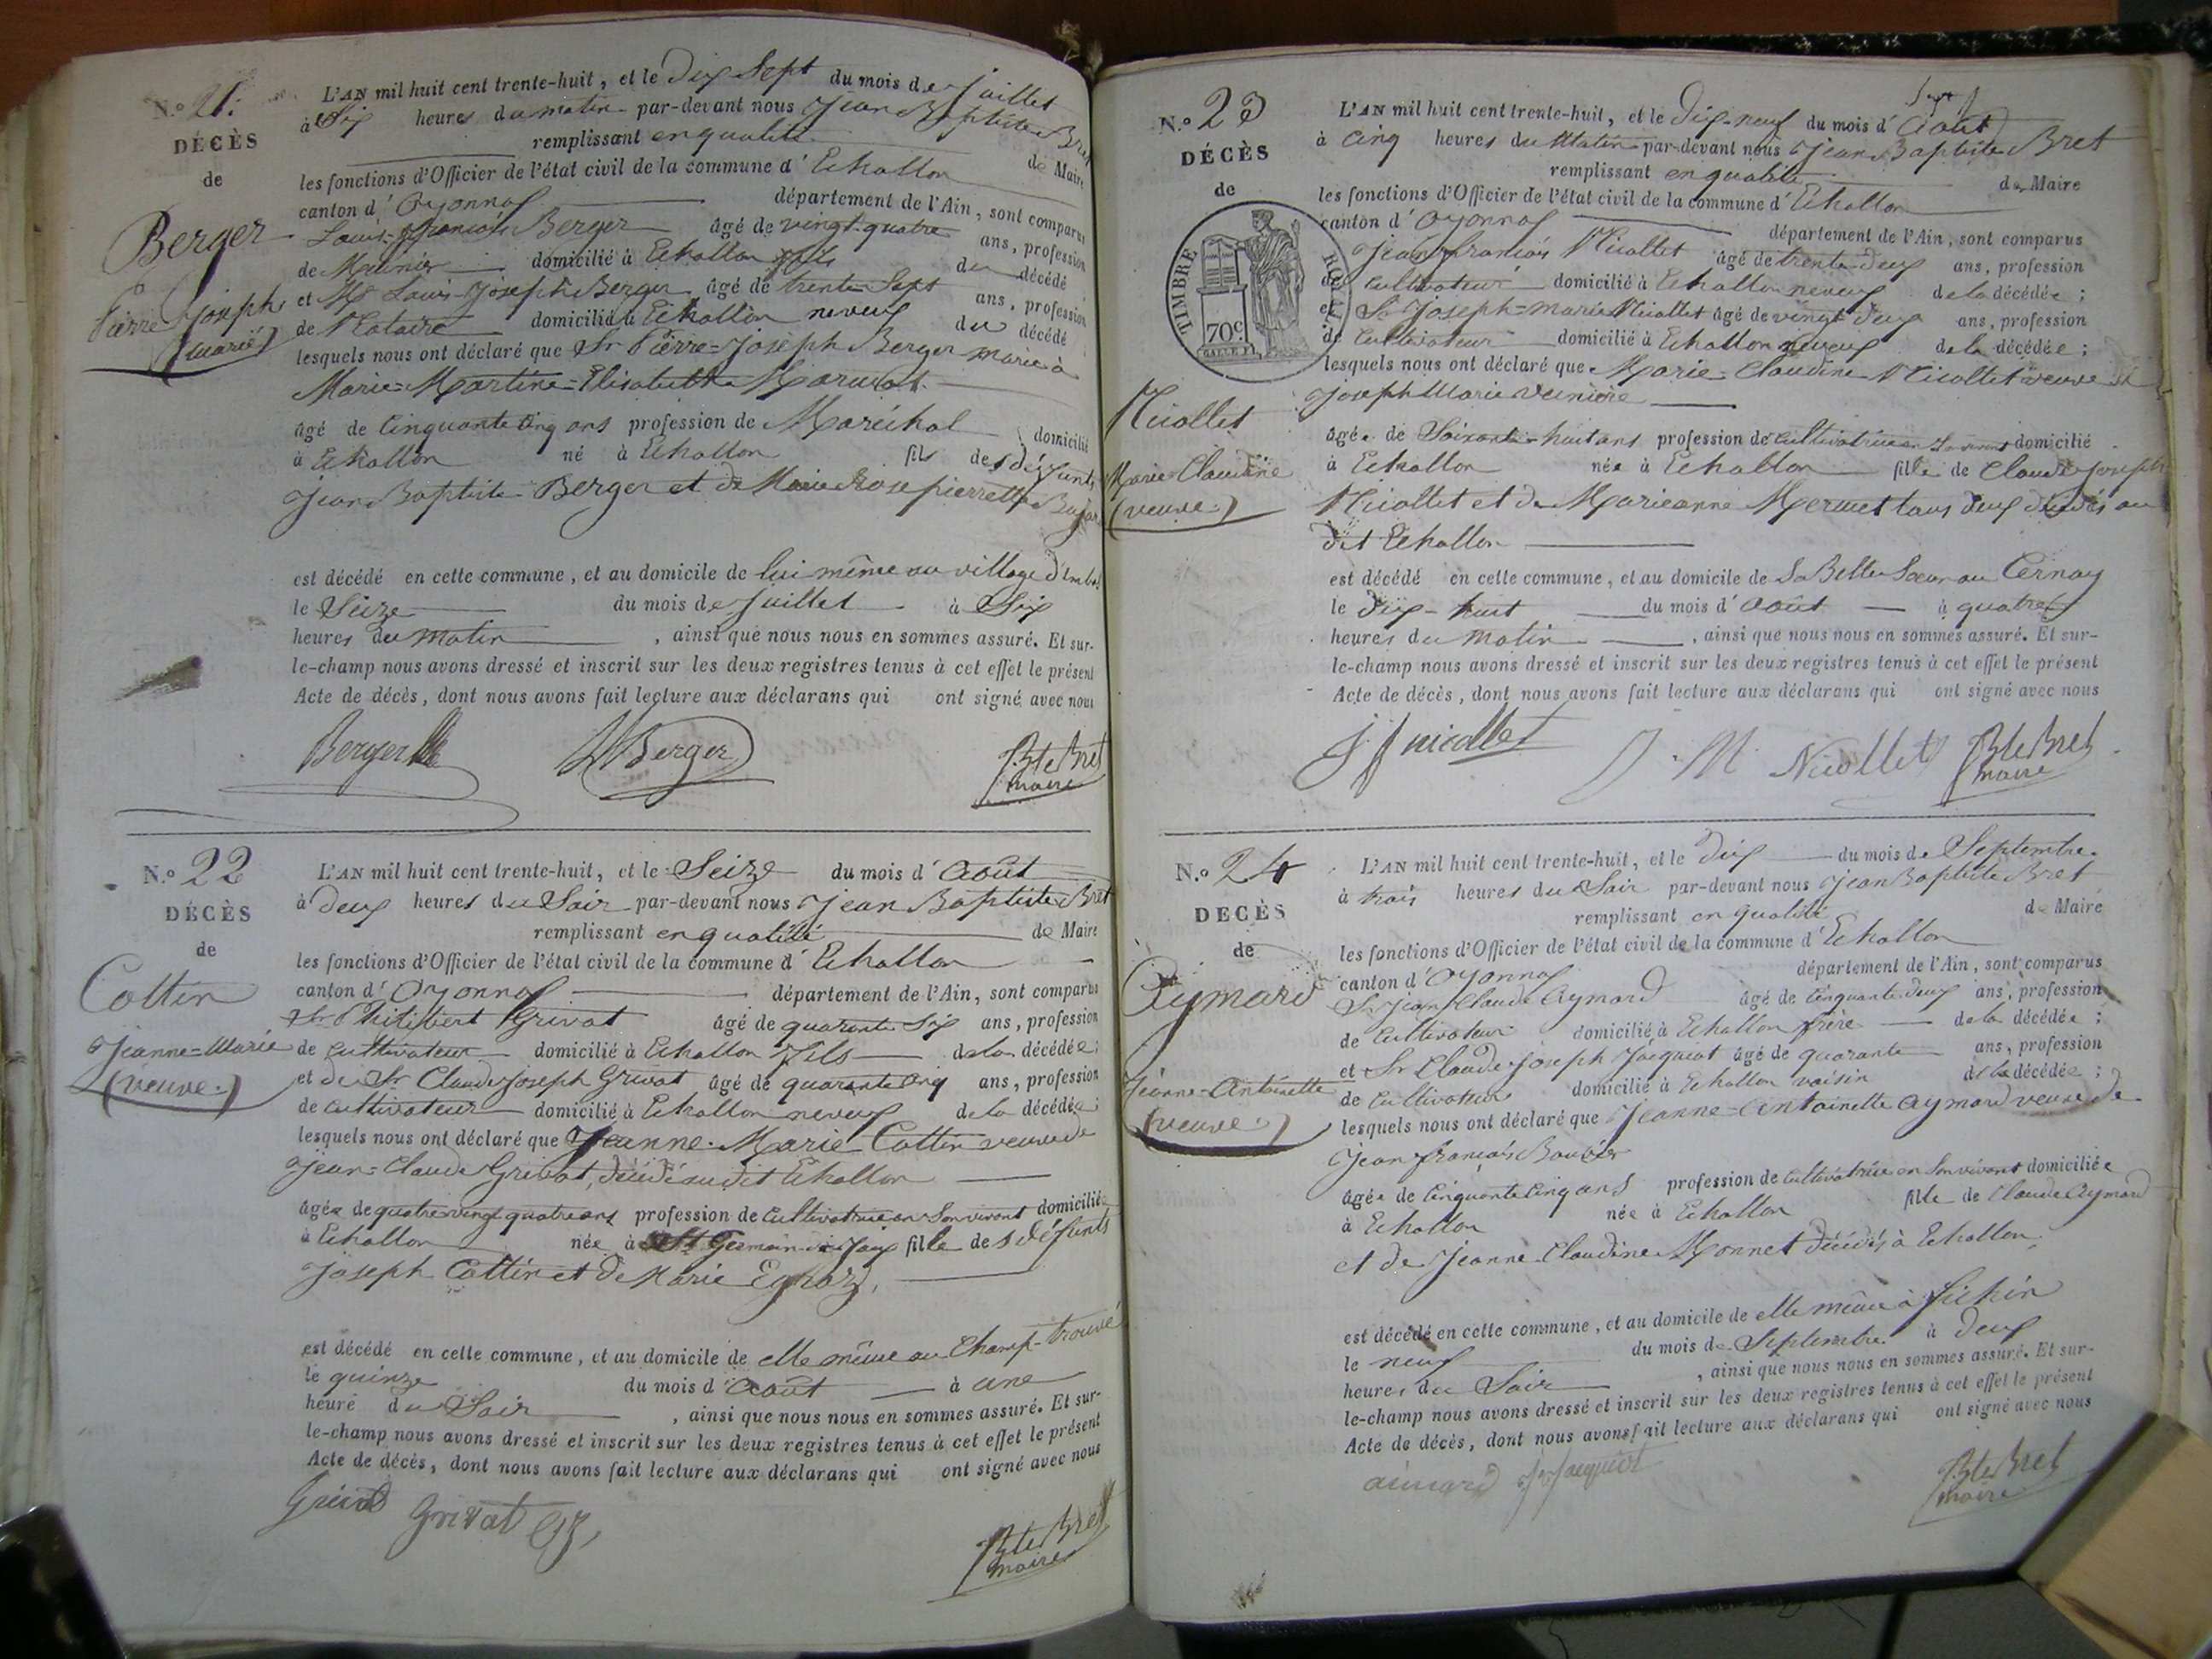 N.o 21.
DÉCÈS
de
Berger
Pierre Joseph
(marié)
L'AN mil huit cent trente-huit, et le dix Sept du mois de Juillet
à Six heures du matin par-devant nous Jean Baptiste Bret
remplissant en qualité de Maire
les fonctions d'Officier de l'état civil de la commune d' Echallon
canton d' Oyonnax département de l'Ain, sont comparus
Louis-François Berger âgé de vingt-quatre ans, profession
de Meunier domicilié à Echallon fils du décédé
et Me Louis-Joseph Berger âgé de trente-Sept ans, profession
de Notaire domicilié à Echallon neveux du décédé
lesquels nous ont déclaré que Sr Pierre-Joseph Berger marié à
Marie-Martine-Elisabeth
âgé de Cinquante Cinq ans profession de Maréchal domicilié
à Echallon né à Echallon fils des défunts
Jean Baptiste Berger et de Marie Rose pierrette
est décédé en cette commune, et au domicile de lui même au village
le Seize du mois de Juillet à Six
heures du matin, ainsi que nous nous en sommes assuré. Et sur-
le-champ nous avons dressé et inscrit sur les deux registres tenus à cet effet le présent
Acte de décès, dont nous avons fait lecture aux déclarans qui ont signé avec nous
Berger Berger Bte Bret
maire
N.o 22
DÉCÈS
de
Cottin
Jeanne-Marie
(veuve.)
L'AN mil huit cent trente-huit, et le Seize du mois d' Août
à deux heures du Soir par-devant nous Jean Baptiste Bret
remplissant en qualité de Maire
les fonctions d'Officier de l'état civil de la commune d' Echallon
canton d' Oyonnax département de l'Ain, sont comparus
Sr Philibert Grivat âgé de quarante Six ans, profession
de cultivateur domicilié à Echallon fils de la décédée;
et de Sr Claude Joseph Grivat âgé de quarante cinq ans, profession
de cultivateur domicilié à Echallon neveux de la décédée;
lesquels nous ont déclaré que Jeanne-Marie Cottin veuve de
Jean-Claude Grivat, décédé au dit Echallon
âgée de quatre vingt quatre ans profession de Cultivatrice en Son vivant domiciliée
à Echallon née à St Germain de Joux fille des défunts
Joseph Cottin et de Marie Egraz,
est décédé en cette commune, et au domicile de elle même au Champ-trouvé
le quinze du mois d' Août à une
heure du Soir, ainsi que nous nous en sommes assuré. Et sur-
le-champ nous avons dressé et inscrit sur les deux registres tenus à cet effet le présent
Acte de décès, dont nous avons fait lecture aux déclarans qui ont signé avec nous
Grivat Grivat Bte Bret
maire
N.o 23
DÉCÈS
de
TIMBRE ROYAL
70c.
Nicollet
Marie-Claudine
(veuve.)
L'AN mil huit cent trente-huit, et le Dix-neuf du mois d' Août
à Cinq heures du Matin par-devant nous Jean Baptiste Bret
remplissant en qualité de Maire
les fonctions d'Officier de l'état civil de la commune d' Echallon
canton d' Oyonnax département de l'Ain, sont comparus
Jean François Nicollet âgé de trente-deux ans, profession
de cultivateur domicilié à Echallon neveux de la décédée;
et Sr Joseph-marie Nicollet âgé de vingt-deux ans, profession
de Cultivateur domicilié à Echallon neveux de la décédée;
lesquels nous ont déclaré que Marie-Claudine Nicollet veuve de
Joseph Marie
âgée de Soixante-huit ans profession de cultivatrice en Son vivant domicilié
à Echallon née à Echallon fille de Claude Joseph
Nicollet et de Marieanne Mermet tous deux décédés au
dit Echallon
est décédé en cette commune, et au domicile de Sa Belle Soeur au Cernay
le dix-huit du mois d' Août à quatre
heures du matin, ainsi que nous nous en sommes assuré. Et sur-
le-champ nous avons dressé et inscrit sur les deux registres tenus à cet effet le présent
Acte de décès, dont nous avons fait lecture aux déclarans qui ont signé avec nous
J f nicollet J. M Nicollet Bte Bret
maire
N.o 24
DÉCÈS
de
Aymard
Jeanne-Antoinette
(veuve.)
L'AN mil huit cent trente-huit, et le Dix du mois de Septembre
à trois heures du Soir par-devant nous Jean Baptiste Bret
remplissant en qualité de Maire
les fonctions d'Officier de l'état civil de la commune d' Echallon
canton d' Oyonnax département de l'Ain, sont comparus
Sr Jean Claude Aymard âgé de Cinquante deux ans, profession
de Cultivateur domicilié à Echallon frère de la décédée;
et Sr Claude Joseph Jacquiot âgé de quarante ans, profession
de Cultivateur domicilié à Echallon voisin de la décédée;
lesquels nous ont déclaré que Jeanne-Antoinette Aymard veuve de
Jean françois Bouvier
âgée de Cinquante Cinq ans profession de Cultivatrice en Son vivant domiciliée
à Echallon née à Echallon fille de Claude Aymard
et de Jeanne Claudine Monnet décédés à Echallon;
est décédé en cette commune, et au domicile de elle même à
le neuf du mois de Septembre à deux
heures du Soir, ainsi que nous nous en sommes assuré. Et sur-
le-champ nous avons dressé et inscrit sur les deux registres tenus à cet effet le présent
Acte de décès, dont nous avons fait lecture aux déclarans qui ont signé avec nous
aimard Jacquiot Bte Bret
maire